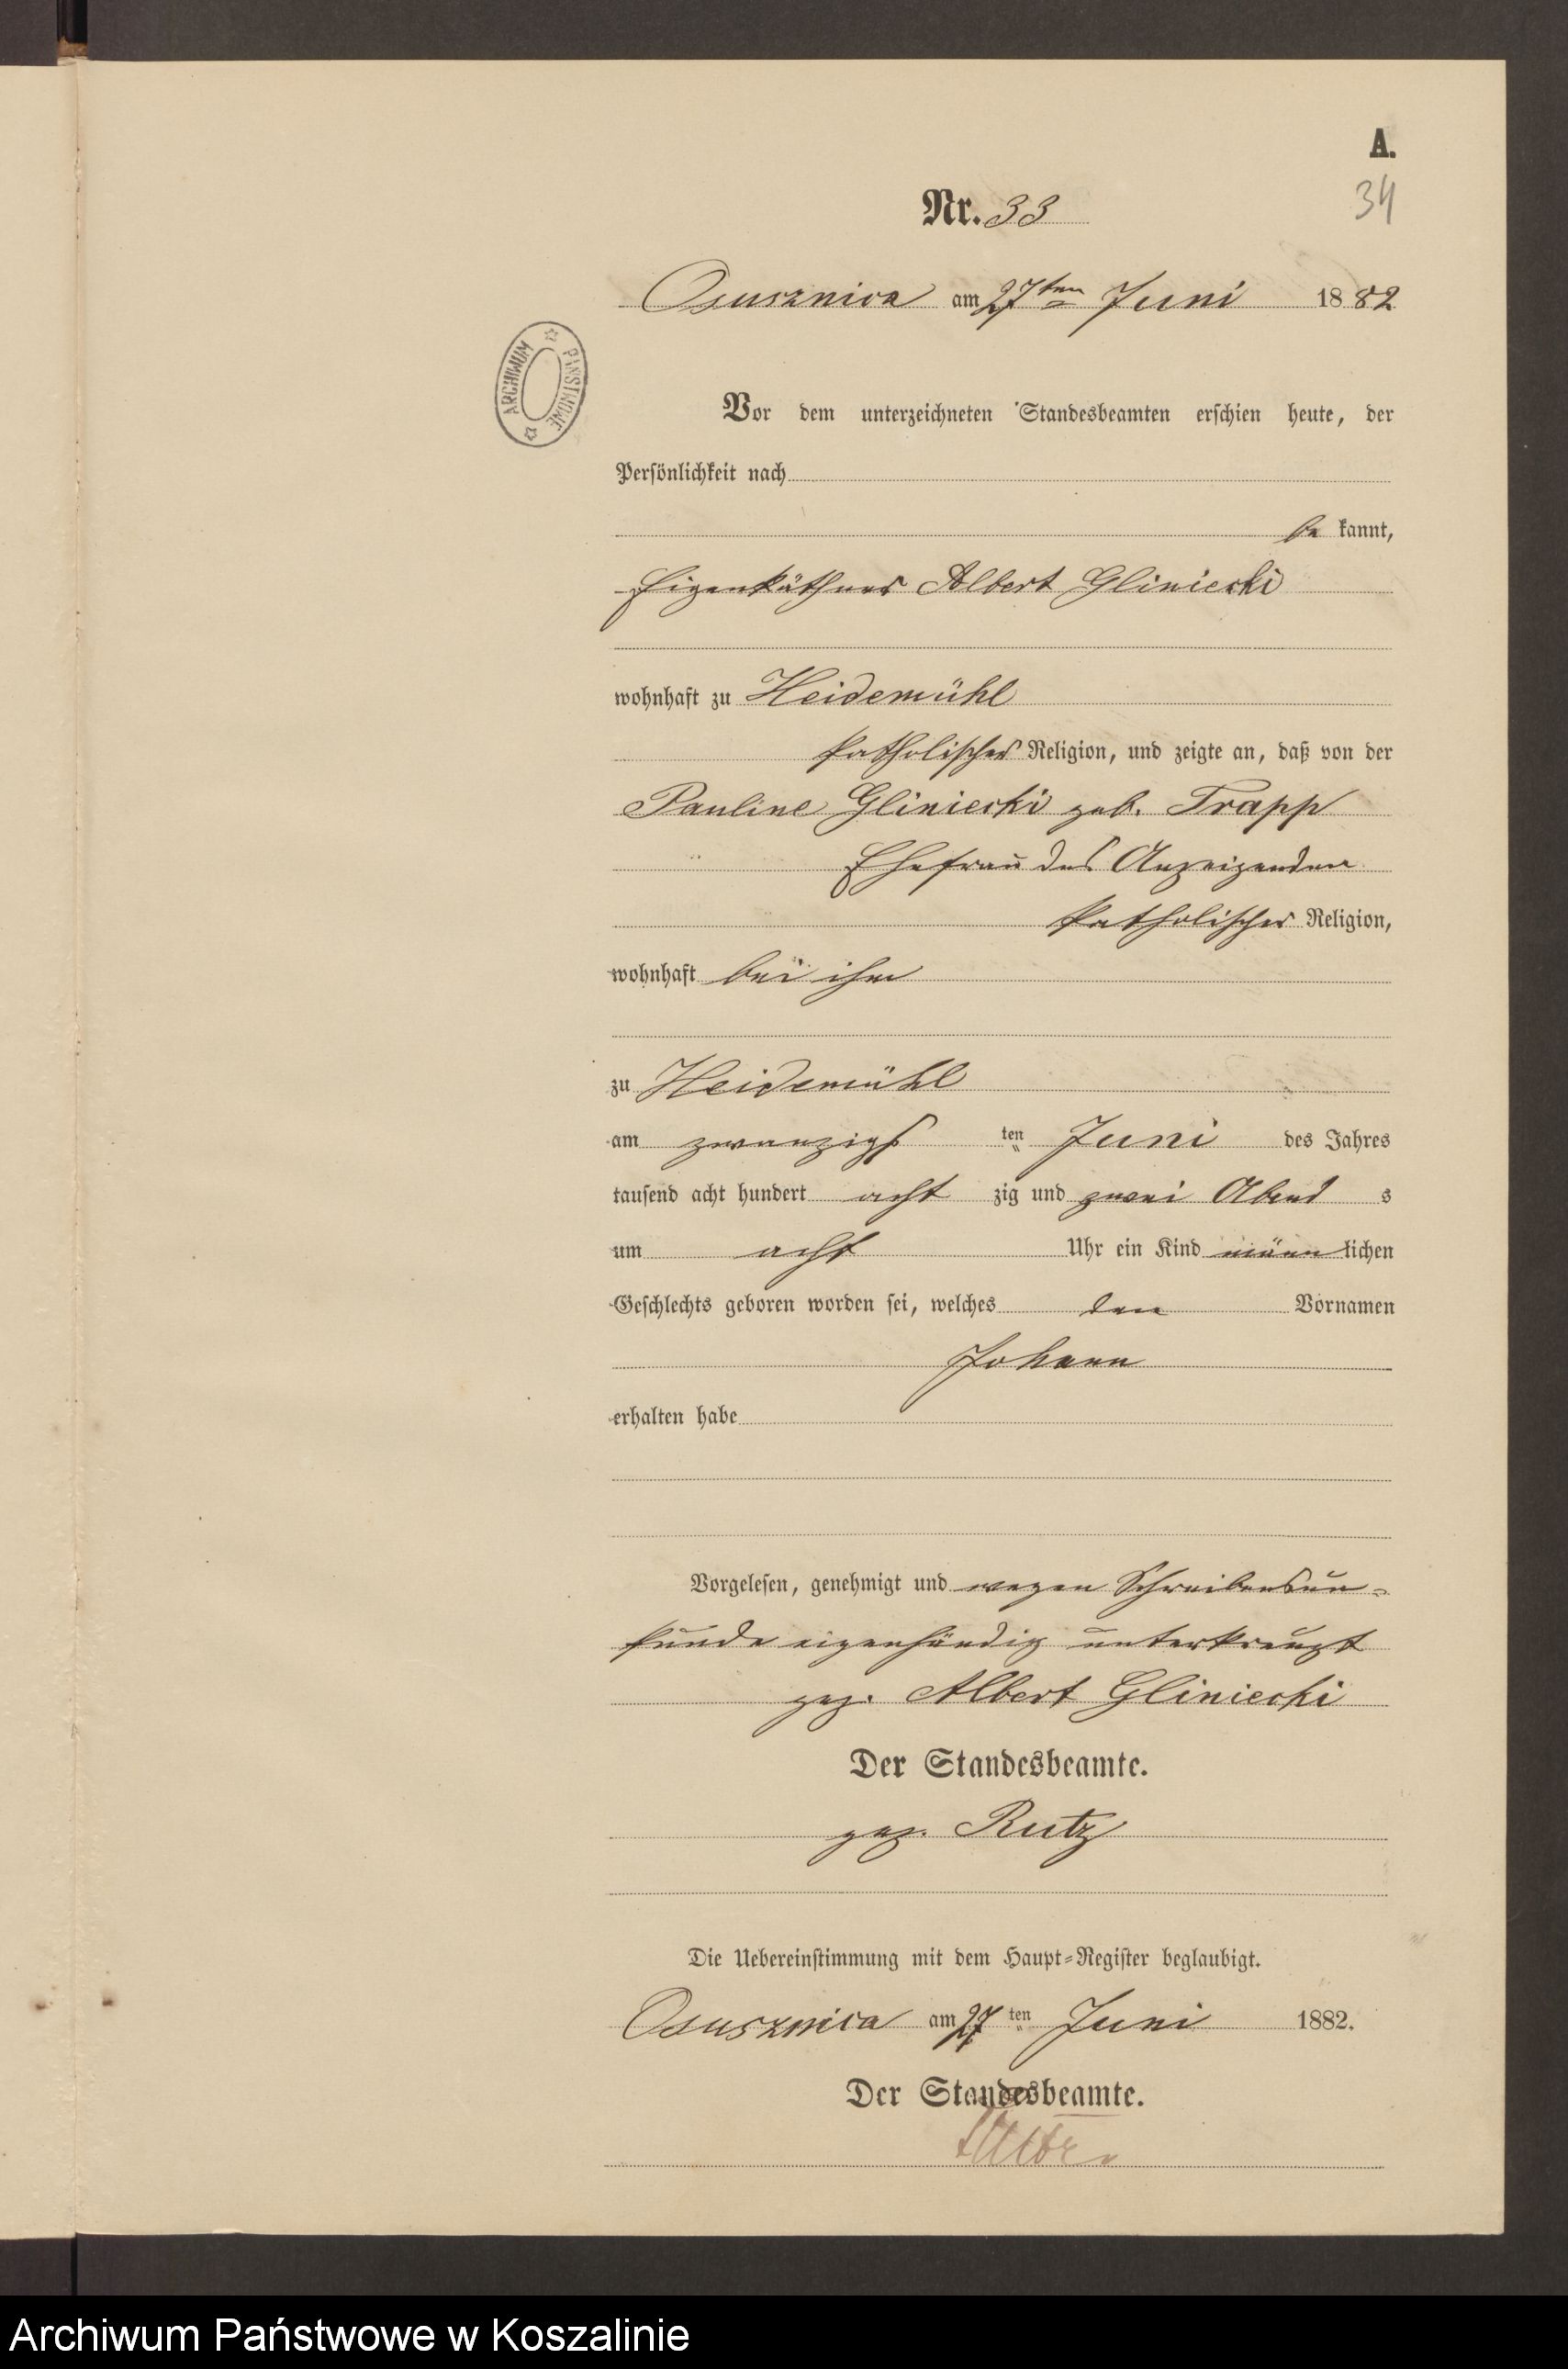 A.
34
Nr. 33
Osusznica am 27ten Juni 1882
ARCHIWUM PAŃSTWOWE
Vor dem unterzeichneten Standesbeamten erschien heute, der
Persönlichkeit nach
be kannt,
Eigenkäthner Albert Gliniecki
wohnhaft zu Heidemühl
katholischer Religion, und zeigte an, daß von der
Pauline Gliniecki geb. Trapp
Ehefrau des Anzeigenden
katholischer Religion,
wohnhaft bei ihm
zu Heidemühl
am zwanzigs ten Juni des Jahres
tausend acht hundert acht zig und zwei Abend s
um acht Uhr ein Kind männ lichen
Geschlechts geboren worden sei, welches den Vornamen
Johann
erhalten habe
Vorgelesen, genehmigt und wegen Schreibensun=
kunde eigenhändig unterkreuzt
gez. Albert Gliniecki
Der Standesbeamte.
gez. Rutz
Die Uebereinstimmung mit dem Haupt=Register beglaubigt.
Osusznica am 27 ten Juni 1882.
Der Standesbeamte.
Archiwum Państwowe w Koszalinie